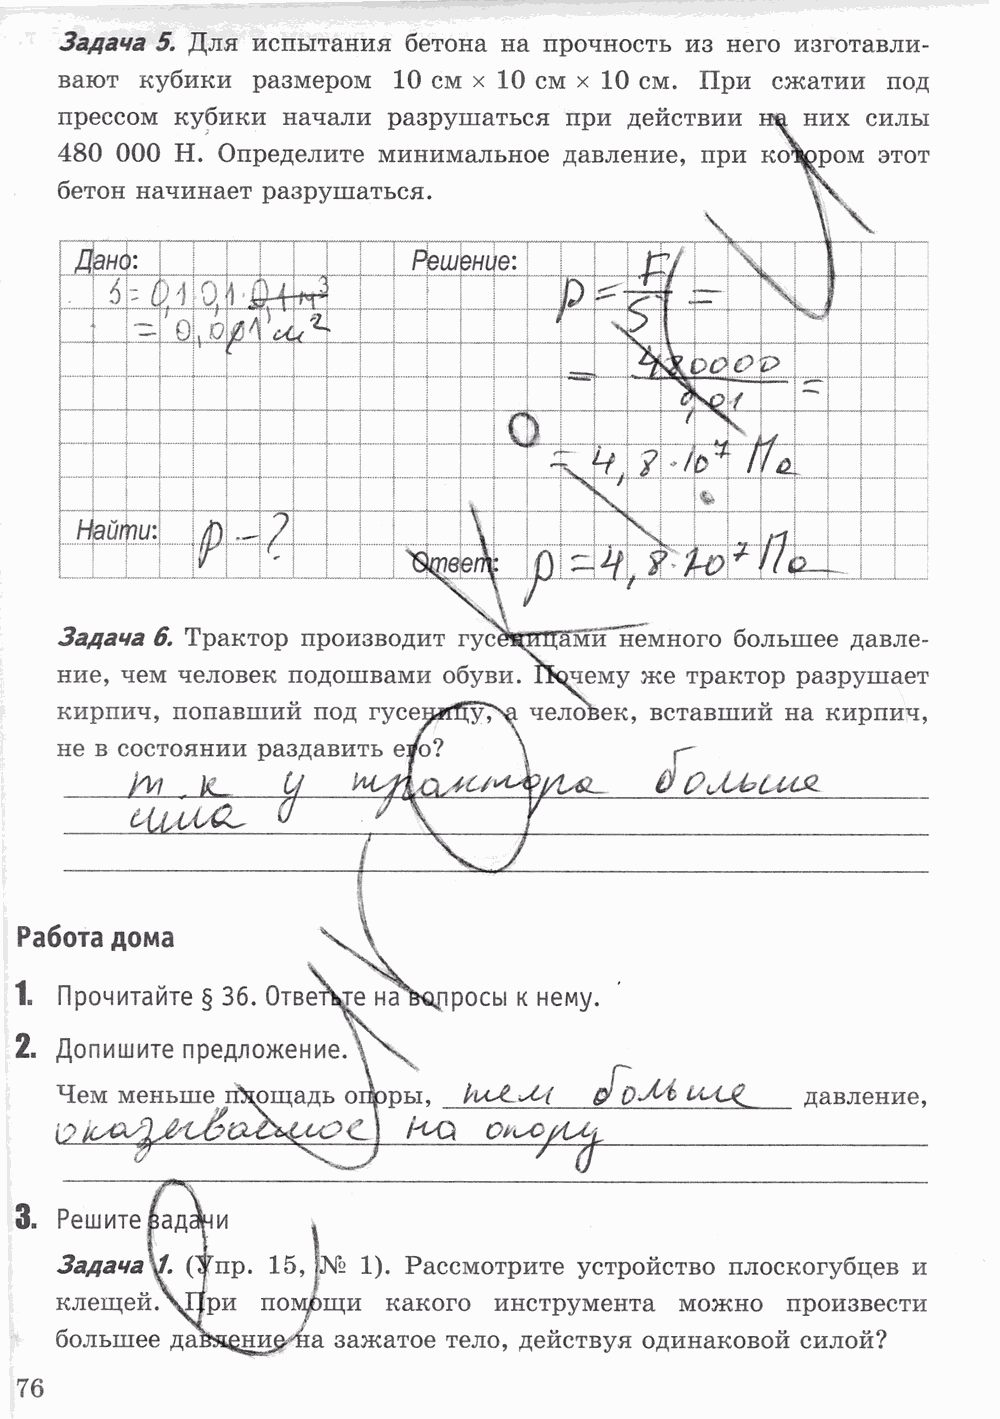 Задача 5. Для испытания бетона на прочность из него изготавли-
вают кубики размером 10 см × 10 см × 10 см. При сжатии под
прессом кубики начали разрушаться при действии на них силы
480 000 Н. Определите минимальное давление, при котором этот
бетон начинает разрушаться.
Дано: Решение:
S = 0,1 · 0,1 · 0,1 м³
= 0,01 м²
p = F/S =
= 480000/0,01 =
= 4,8 · 10⁷ Па
Найти: p – ?
Ответ: p = 4,8 · 10⁷ Па
Задача 6. Трактор производит гусеницами немного большее давле-
ние, чем человек подошвами обуви. Почему же трактор разрушает
кирпич, попавший под гусеницу, а человек, вставший на кирпич,
не в состоянии раздавить его?
т.к у трактора больше
сила
Работа дома
1. Прочитайте § 36. Ответьте на вопросы к нему.
2. Допишите предложение.
Чем меньше площадь опоры, тем больше давление,
оказываемое на опору
3. Решите задачи
Задача 1. (Упр. 15, № 1). Рассмотрите устройство плоскогубцев и
клещей. При помощи какого инструмента можно произвести
большее давление на зажатое тело, действуя одинаковой силой?
76